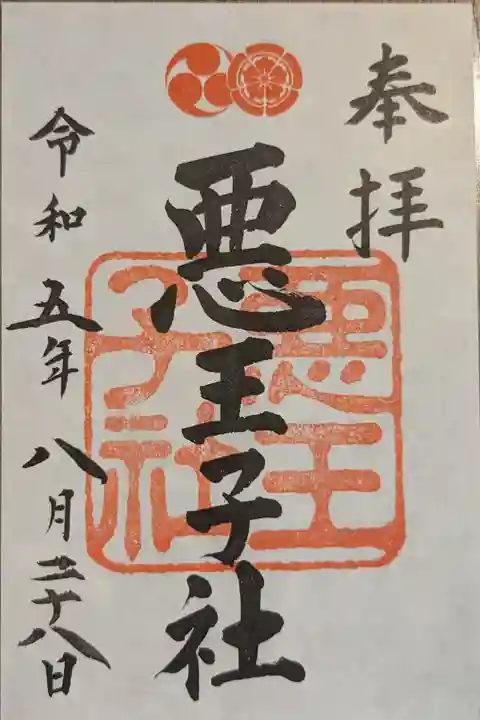 奉拝
悪王子社
悪王子社
令和五年八月二十八日